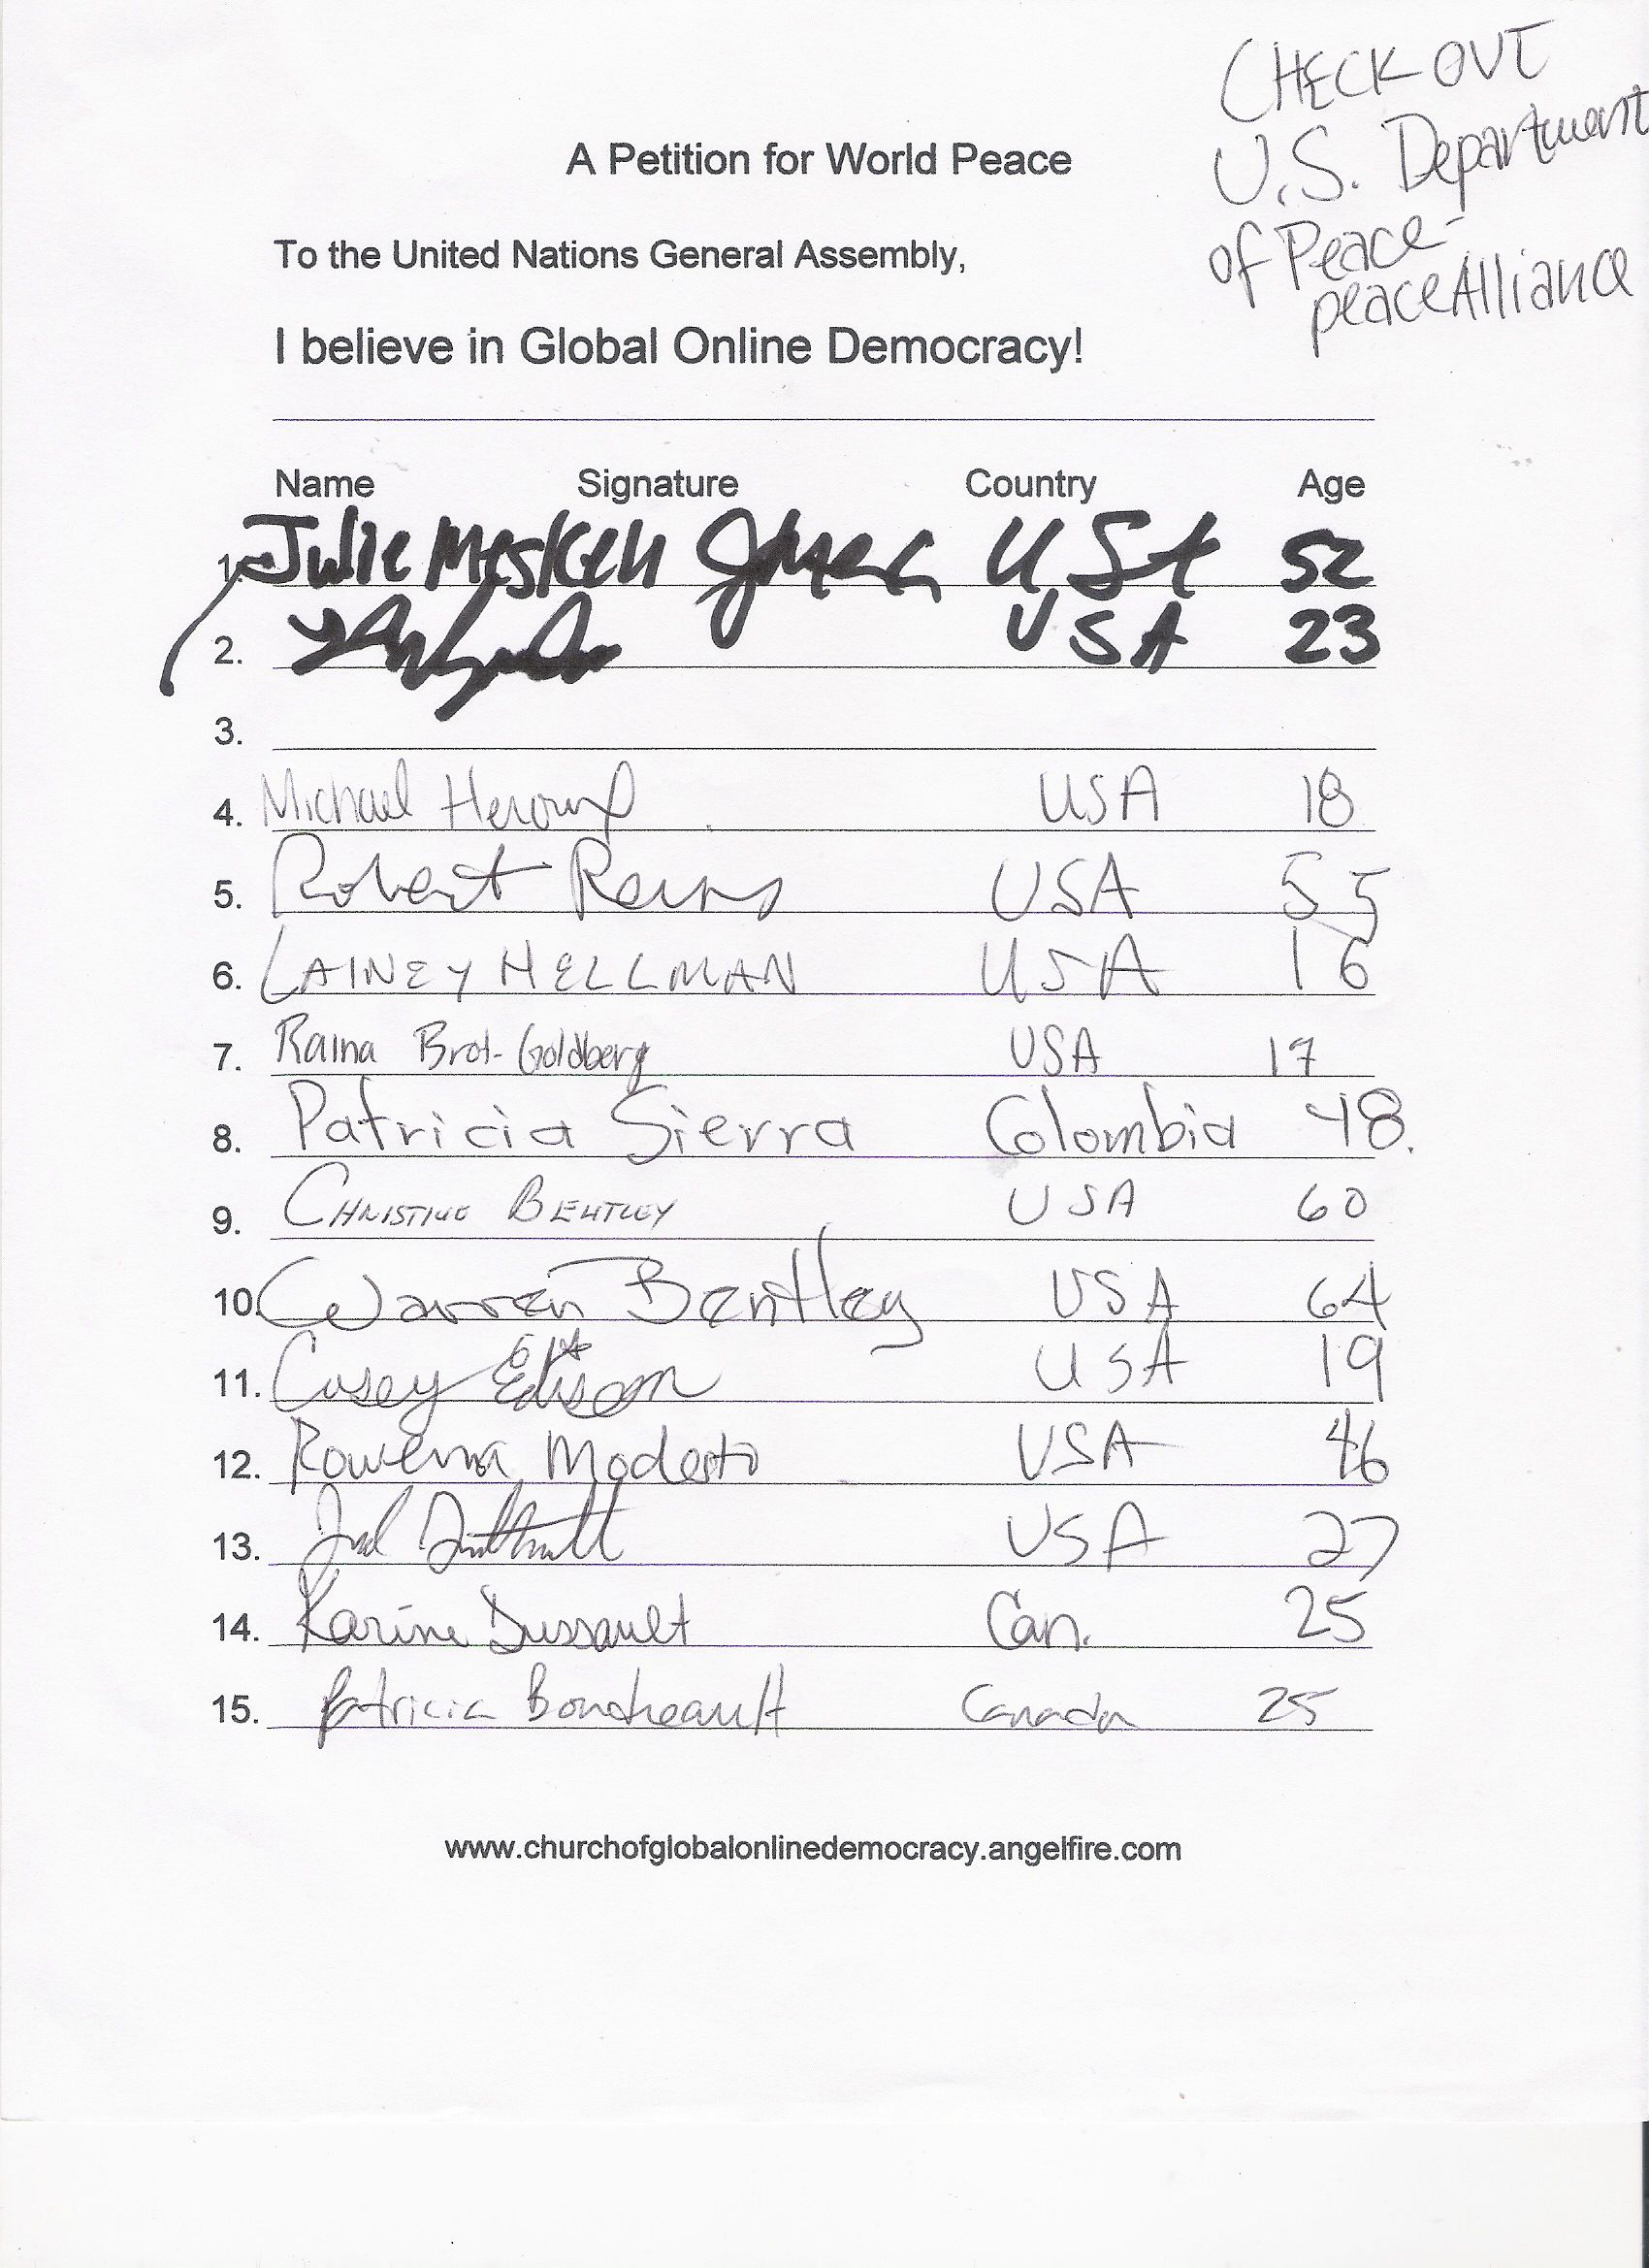 CHECK OUT
U.S. Department
of Peace-
peaceAlliance
A Petition for World Peace
To the United Nations General Assembly,
I believe in Global Online Democracy!
Name Signature Country Age
1. Julie USA 52
2. USA 23
3.
4. Michael Heroux USA 18
5. Robert USA 55
6. LAINEY HELLMAN USA 16
7. Raina Brot-Goldberg USA 17
8. Patricia Sierra Colombia 48.
9. CHRISTINE BENTLEY USA 60
10. Warren Bentley USA 64
11. Casey Edison USA 19
12. Rowena Modesto USA 46
13. USA 27
14. Karine Dussault Can. 25
15. Patricia Canada 25
www.churchofglobalonlinedemocracy.angelfire.com